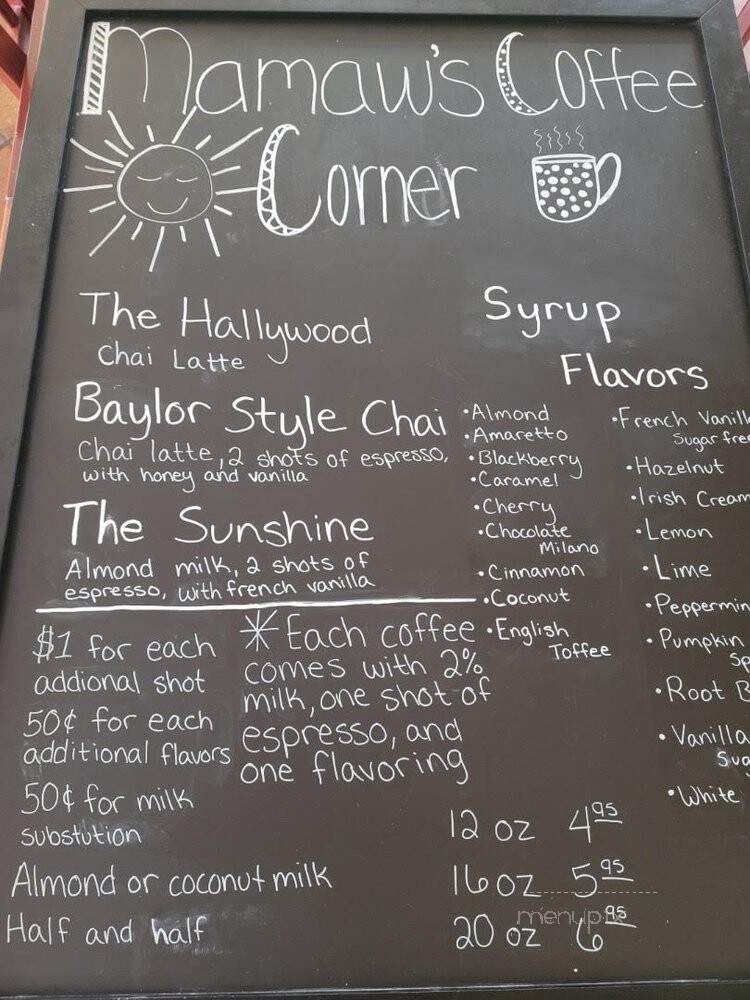 Mamaw's Coffee
Corner
The Hallywood
Chai Latte
Baylor Style Chai
Chai latte, 2 shots of espresso,
with honey and vanilla
The Sunshine
Almond milk, 2 shots of
espresso, with french vanilla
Syrup
Flavors
•Almond
•Amaretto
•Blackberry
•Caramel
•Cherry
•Chocolate
Milano
•Cinnamon
•Coconut
•English
Toffee
•French Vanill
Sugar free
•Hazelnut
•Irish Cream
•Lemon
•Lime
•Peppermin
•Pumpkin
Sp
•Root B
•Vanilla
Suga
•White
$1 for each
addional shot
50¢ for each
additional flavors
50¢ for milk
substution
Almond or coconut milk
Half and half
*Each coffee
comes with 2%
milk, one shot of
espresso, and
one flavoring
12 oz 4.95
16 oz 5.95
20 oz 6.95